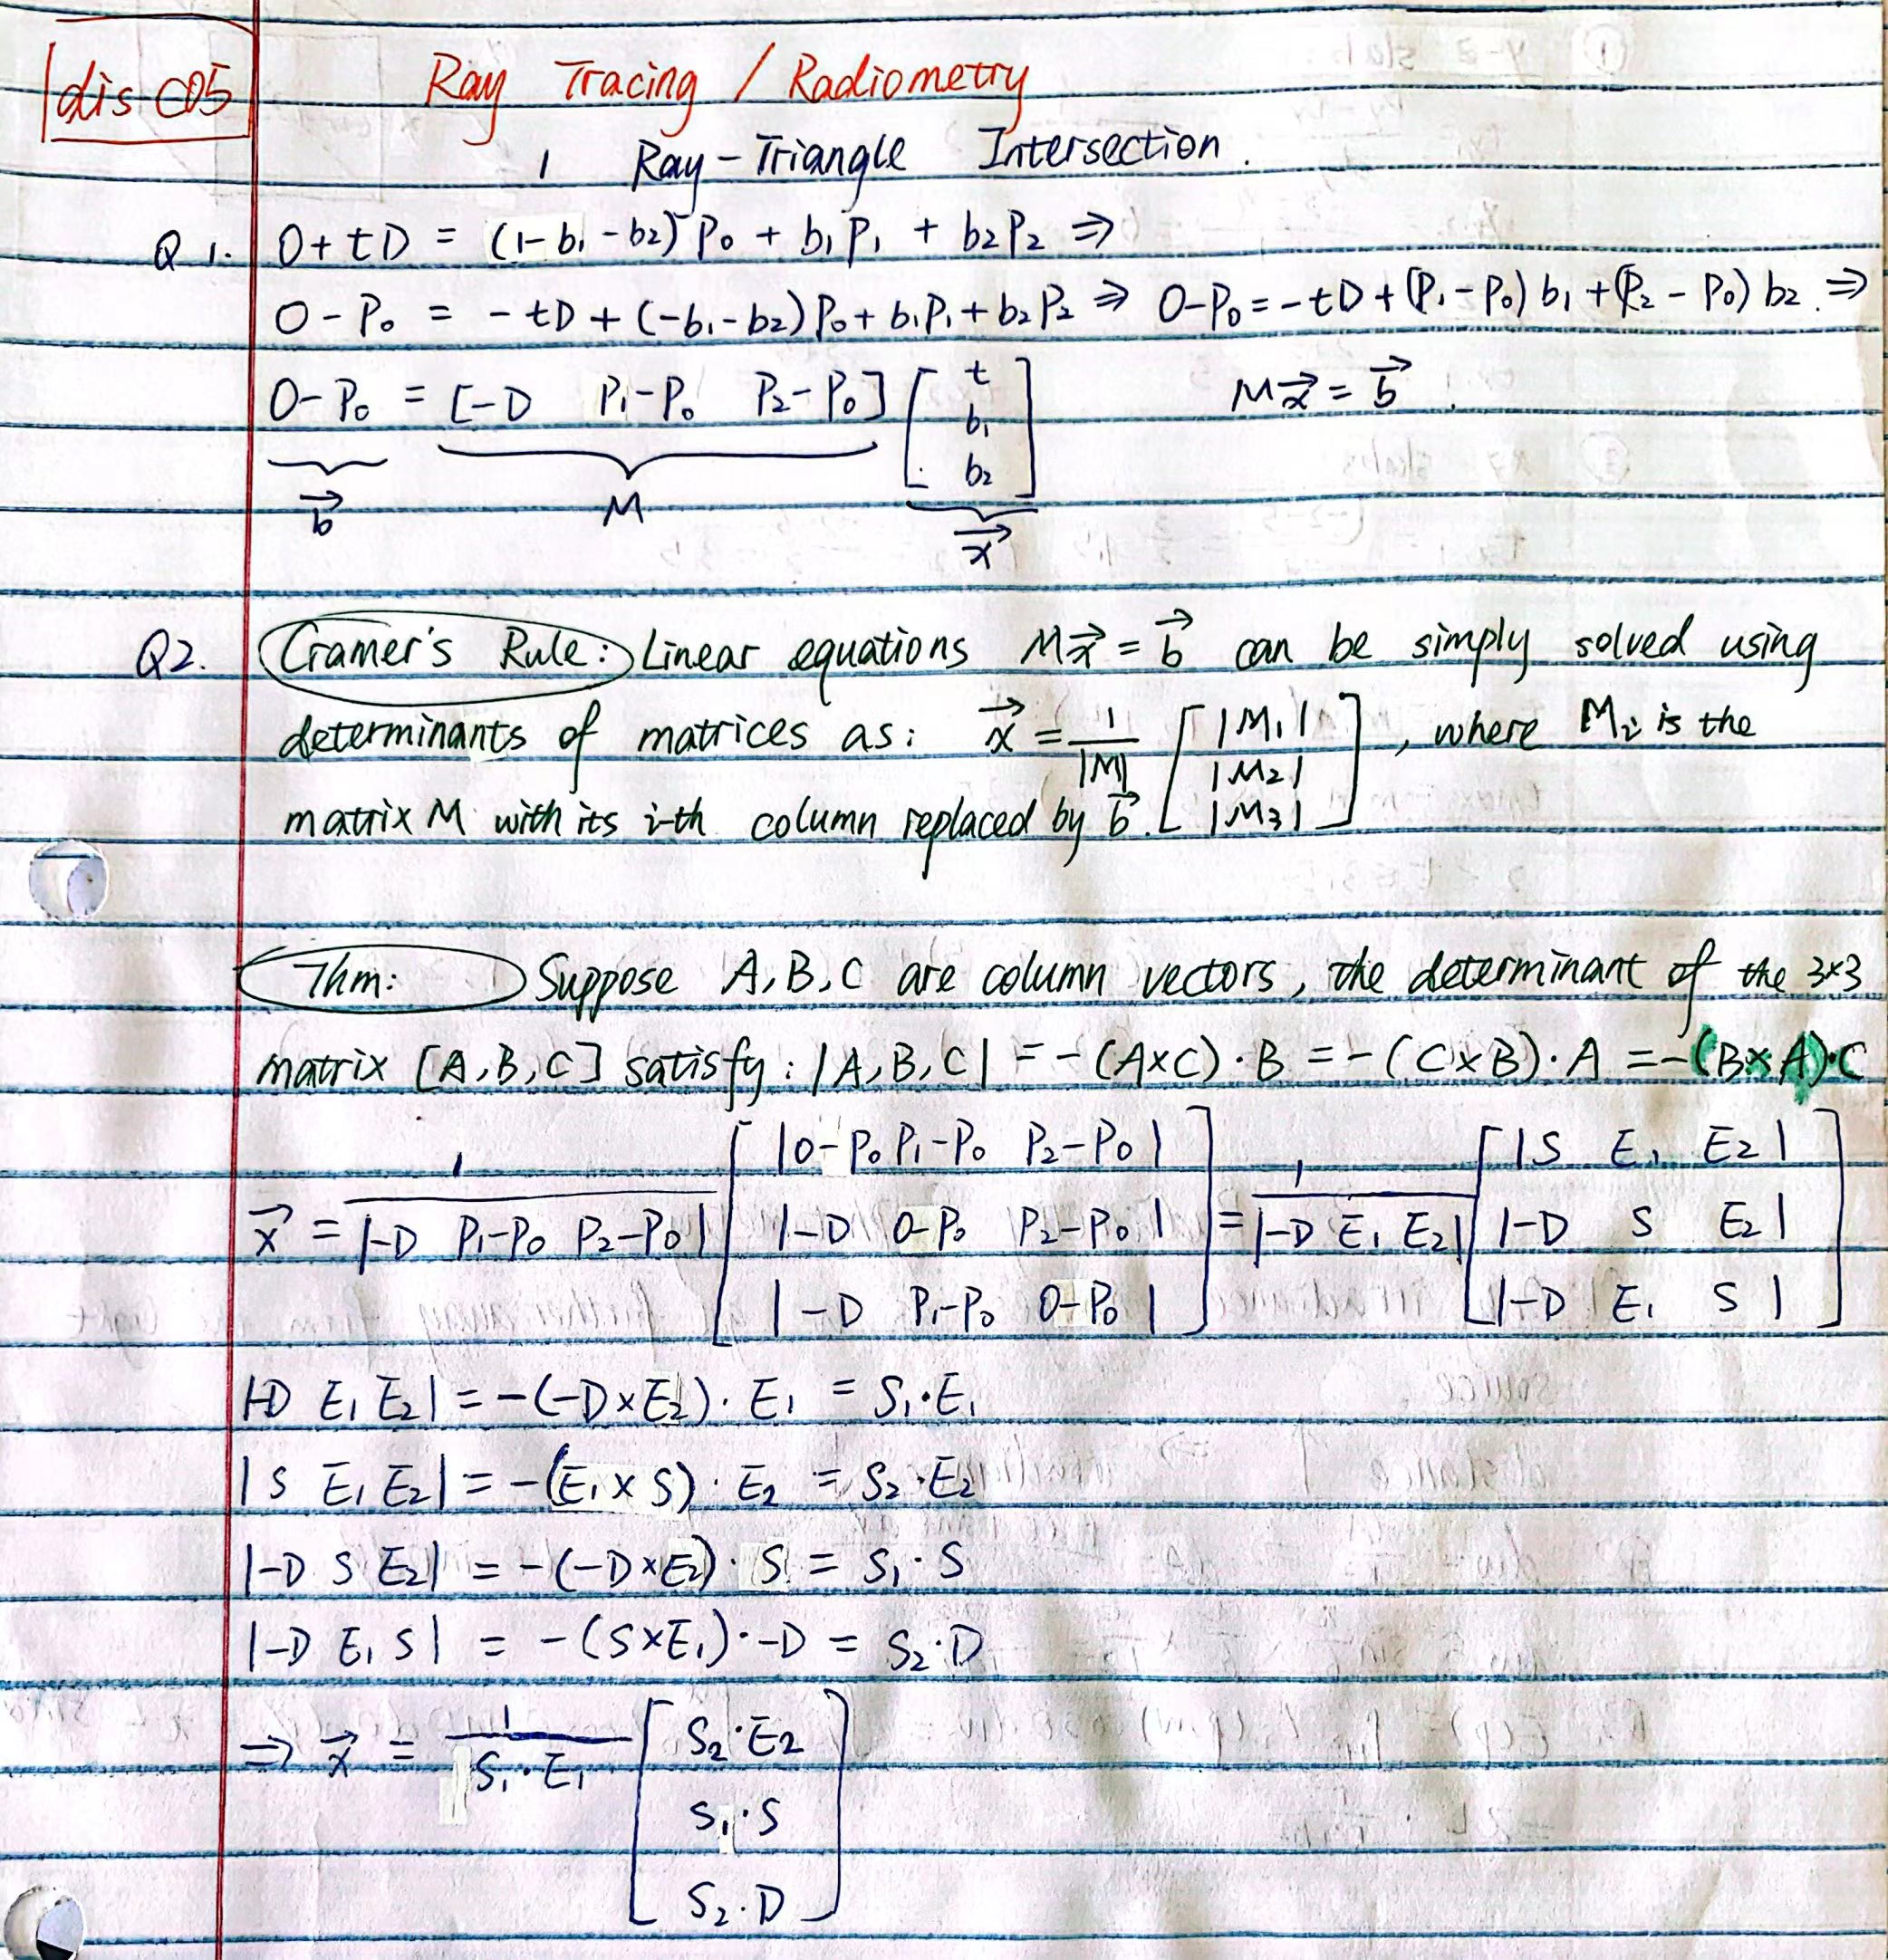 dis 05
Ray Tracing / Radiometry
1 Ray-Triangle Intersection.
Q1. O+tD = (1-b₁-b₂)P₀ + b₁P₁ + b₂P₂ ⇒
O-P₀ = -tD+(-b₁-b₂)P₀+b₁P₁+b₂P₂ ⇒ O-P₀=-tD+(P₁-P₀)b₁+(P₂-P₀)b₂. ⇒
O-P₀ = [-D P₁-P₀ P₂-P₀] [t b₁ b₂] Mx⃗ = b⃗.
b⃗ M x⃗
Q2. Cramer's Rule: Linear equations Mx⃗ = b⃗ can be simply solved using
determinants of matrices as: x⃗ = 1/|M| [|M₁| |M₂| |M₃|], where Mᵢ is the
matrix M with its i-th column replaced by b⃗.
Thm: Suppose A,B,C are column vectors, the determinant of the 3×3
matrix [A,B,C] satisfy: |A,B,C| = -(A×C)·B = -(C×B)·A = -(B×A)·C
x⃗ = 1/|-D P₁-P₀ P₂-P₀| [|O-P₀ P₁-P₀ P₂-P₀| |-D O-P₀ P₂-P₀| |-D P₁-P₀ O-P₀|] = 1/|-D E₁ E₂| [|S E₁ E₂| |-D S E₂| |-D E₁ S|]
|-D E₁ E₂| = -(-D×E₂)·E₁ = S₁·E₁
|S E₁ E₂| = -(E₁×S)·E₂ = S₂·E₂
|-D S E₂| = -(-D×E₂)·S = S₁·S
|-D E₁ S| = -(S×E₁)·-D = S₂·D
⇒ x⃗ = 1/S₁·E₁ [S₂·E₂ S₁·S S₂·D]